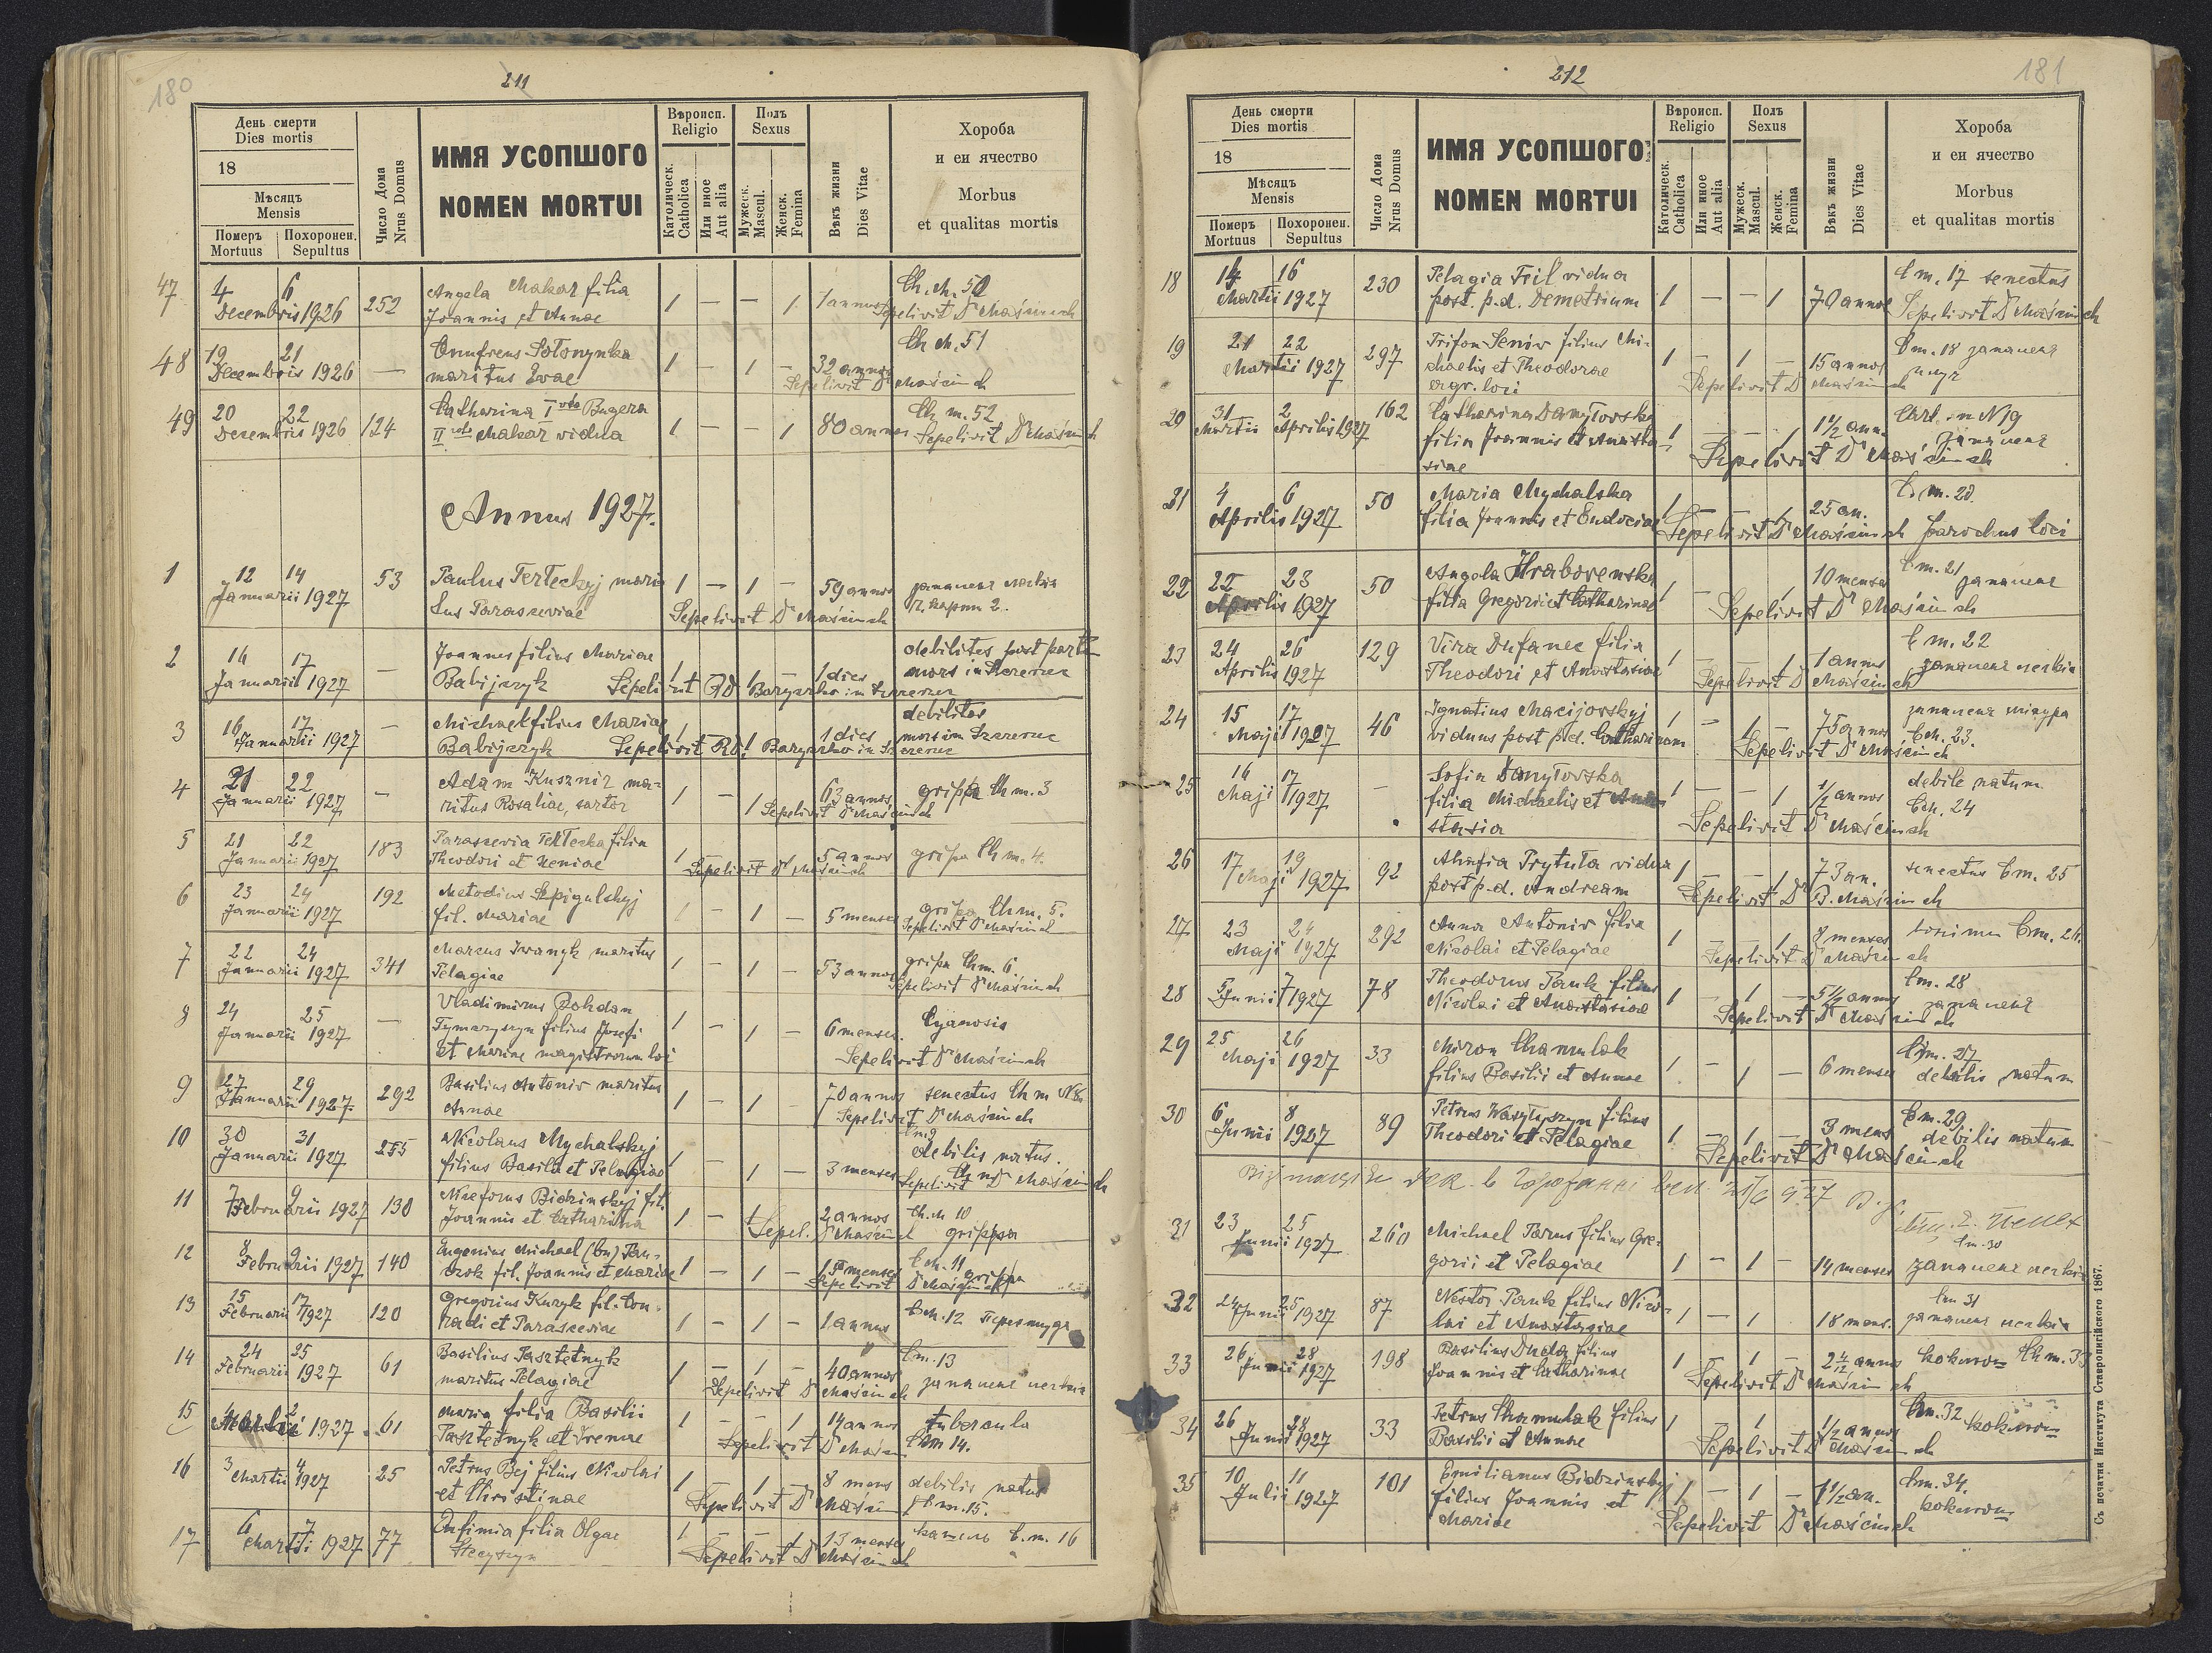 180
211
День смерти
Dies mortis
18
Мѣсяцъ
Mensis
Померъ
Mortuus
Похоронен.
Sepultus
Число Дома
Nrus Domus
ИМЯ УСОПШОГО
NOMEN MORTUI
Вѣроисп.
Religio
Католическ.
Catholica
Или иное
Aut alia
Полъ
Sexus
Мужеск.
Mascul.
Женск.
Femina
Вѣкъ жизни
Dies Vitae
Хороба
и еи ячество
Morbus
et qualitas mortis
47 4 6 252 Angela Makar filia 1 — — 1 1 annus
Decembris 1926 Joannis et Annae Sepelivit Dr Maścinch
48 19 21 — Onufreus Sotonynka 1 — 1 — 32 annos Ch. m. 51
Decembris 1926 maritus Evae Sepelivit Dr Maścinch
49 20 22 124 Catharina I voto Bugera 1 — — 1 80 annos Ch. m. 52
Decembris 1926 II voto Makar vidua Sepelivit Dr Maścinch
Annus 1927.
1 12 14 53 Paulus Terteckyj mari 1 — 1 — 59 annos
Januarii 1927 tus Parasceviae Sepelivit Dr Maścinch
2 16 17 — Joannes filius Mariae 1 1 dies debilitas post partu
Januarii 1927 Babijczyk Sepelivit in Szczerzec mors in Szczerzec
3 16 17 — Michael filius Mariae 1 1 dies debilitas
Januarii 1927 Babijczyk Sepelivit in Szczerzec mors in Szczerzec
4 21 22 — Adam Kusznir ma- 1 — 1 63 annos grippa Ch m. 3
Januarii 1927 ritus Rosaliae, sartor Sepelivit Dr Maścinch
5 21 22 183 Parascevia Tertecka filia 1 5 annos gripa Ch m. 4.
Januarii 1927 Theodori et Xeniae Sepelivit Dr Maścinch
6 23 24 192 Metodius Szpigulskyj 1 — 1 — 5 menses gripa Ch m. 5.
Januarii 1927 fil. Mariae Sepelivit Dr Maścinch
7 22 24 341 Marcus Iwanyk maritus 1 — 1 — 53 annos gripa Ch m. 6
Januarii 1927 Pelagiae Sepelivit Dr Maścinch
8 24 25 — Vladimirus Bohdan 1 — 1 — 6 menses Cyanosis
Januarii 1927 Tymczyszyn filius Josefi
et Mariae magistrorum loci Sepelivit Dr Maścinch
9 27 29 292 Basilius Antoniv maritus 1 — 1 — 70 annos senectus Ch m N 8
Januarii 1927 Annae Sepelivit Dr Maścinch
10 30 31 255 Nicolaus Mychalskyj 1 — 1 — 3 menses debilis natus.
Januarii 1927 filius Basilii et Pelagiae Sepelivit Dr Maścinch
11 7 9 130 Niceforus Bidzinskyj fil. 1 — 1 2 annos Ch. m 10
Februarii 1927 Joannis et Catharina Sepel. Dr Maścinch grippa
12 8 9 140 Eugenius Michael (bn) Pan- 1 — 1 — 15 menses C m. 11
Februarii 1927 czok fil. Joannis et Mariae Sepelivit Dr Maścinch grippa
13 15 17 120 Gregorius Kuzyk fil. Con- 1 — 1 — 1 annus C m. 12
Februarii 1927 radi et Parasceviae
14 24 25 61 Basilius Pasztetnyk 1 — 1 — 40 annos C m. 13
Februarii 1927 maritus Pelagiae Sepelivit Dr Maścinch запаленє легких
15 2 61 Maria filia Basilii 1 — — 1 14 annos tubercula
Martii 1927 Pasztetnyk et Irenae Sepelivit Dr Maścin C m 14.
16 3 4 25 Petrus Bej filius Nicolai 1 — 1 8 mens debilis natus
Martii 1927 et Christinae Sepelivit Dr Maścin C m. 15.
17 6 7 77 Eufimia filia Olgae 1 — — 1 13 menses кашель C. m. 16
Martii 1927 Stecyszyn Sepelivit Dr Maścinch
212
181
День смерти
Dies mortis
18
Мѣсяцъ
Mensis
Померъ
Mortuus
Похоронен.
Sepultus
Число Дома
Nrus Domus
ИМЯ УСОПШОГО
NOMEN MORTUI
Вѣроисп.
Religio
Католическ.
Catholica
Или иное
Aut alia
Полъ
Sexus
Мужеск.
Mascul.
Женск.
Femina
Вѣкъ жизни
Dies Vitae
Хороба
и еи ячество
Morbus
et qualitas mortis
18 14 16 230 Pelagia Fril vidua 1 — — 1 70 annos C m. 17 senectus
Martii 1927 post. p.d. Demetrium Sepelivit Dr Maścinch
19 21 22 297 Trifon Seniv filius Mi- 1 — 1 — 15 annos C m. 18 запаленя
Martii 1927 chaelis et Theodorae Sepelivit Dr Maścinch
agr. loci
20 31 2 162 Catharina Danyłovska 1 — — 1 1 1/2 ann.
Martii Aprilis 1927 filia Joannis et Anasta- запаленя
siae Sepelivit Dr Maścinch
21 4 6 50 Maria Mychalska 1 — — 1 25 an. C. m. 20
Aprilis 1927 filia Joannis et Eudociae Sepelivit Dr Maścinch parochus loci
22 22 23 50 Angela Hrabovenska 1 — 1 10 menses C m. 21 запаленє
Aprilis 1927 filia Gregorii et Catharinae Sepelivit Dr Maścinch
23 24 26 129 Vira Dufanec filia 1 — 1 1 annus C m. 22
Aprilis 1927 Theodori et Anastasiae Sepelivit Dr Maścinch запаленя легких
24 15 17 46 Ignatius Macijovskyj 1 — 1 — 75 annos
Maji 1927 viduus post p.d. Catharinam Sepelivit Dr Maścinch C m. 23.
25 16 17 — Sofia Danyłovska 1 — — 1 1/2 annos debile natum
Maji 1927 filia Michaelis et Ana- C m. 24
stasia Sepelivit Dr Maścinch
26 17 19 92 Ahafia Prytuła vidua 1 — — 1 73 an. senectus C m. 25
Maji 1927 post p.d. Andream Sepelivit Dr B. Maścinch
27 23 24 292 Anna Antoniv filia 1 — 1 8 menses C m. 26.
Maji 1927 Nicolai et Pelagiae Sepelivit Dr Maścinch
28 5 7 78 Theodorus Pauk filius 1 — 1 — 5 1/2 annos C m. 28
Junii 1927 Nicolai et Anastasiae Sepelivit Dr Maścinch запаленя
29 25 26 33 Miron Chamulak 1 — 1 — 6 menses C m. 27
Maji 1927 filius Basilii et Annae debilis natum
30 6 8 89 Petrus Wasyłyszyn filius 1 — 1 — 3 mens C m. 29
Junii 1927 Theodori et Pelagiae Sepelivit Dr Maścinch debilis natum
31 23 25 260 Michael Parus filius Gre- C m. 30
Junii 1927 gorii et Pelagiae 1 — 1 — 14 menses запаленє легких
32 24 25 87 Nestor Pauk filius Nico- 1 — 1 18 mens. C m 31
Junii 1927 lai et Anastasiae запаленя легких
33 26 28 198 Basilius Duda filius 1 — 1 — 2 4/12 annos коклюш Ch m. 33
Junii 1927 Joannis et Catharinae Sepelivit Dr Maścinch
34 26 28 33 Petrus Chamulak filius 1 — 1 1/2 annos C m. 32 коклюш
Junii 1927 Basilii et Annae Sepelivit Dr Maścinch
35 10 11 101 Emilianus Bidzinskyj 1 — 1 — 1 1/2 an. C m. 34.
Julii 1927 filius Joannis et коклюш
Mariae Sepelivit Dr Maścinch
Съ печатни Института Ставропигійского 1867.